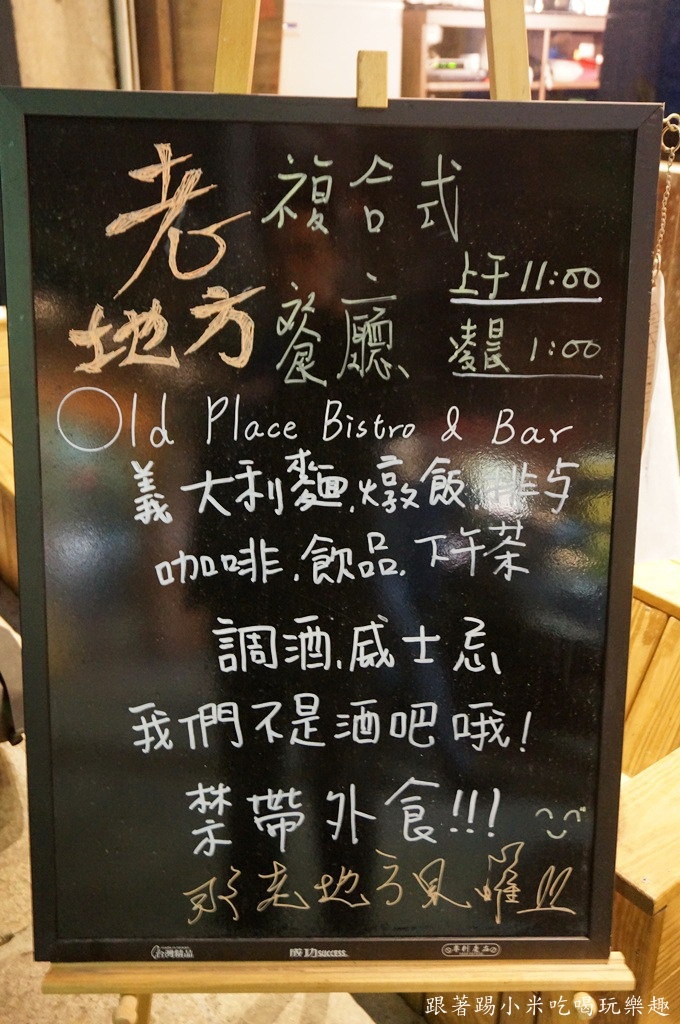 老地方
複合式
餐廳
上午 11:00
凌晨 1:00
Old Place Bistro & Bar
義大利麵.燉飯.排餐
咖啡.飲品.下午茶
調酒.威士忌
我們不是酒吧哦!
禁帶外食!!!
老地方見囉!!!
台灣精品
成功 SUCCESS
專利產品
跟著踢小米吃喝玩樂趣